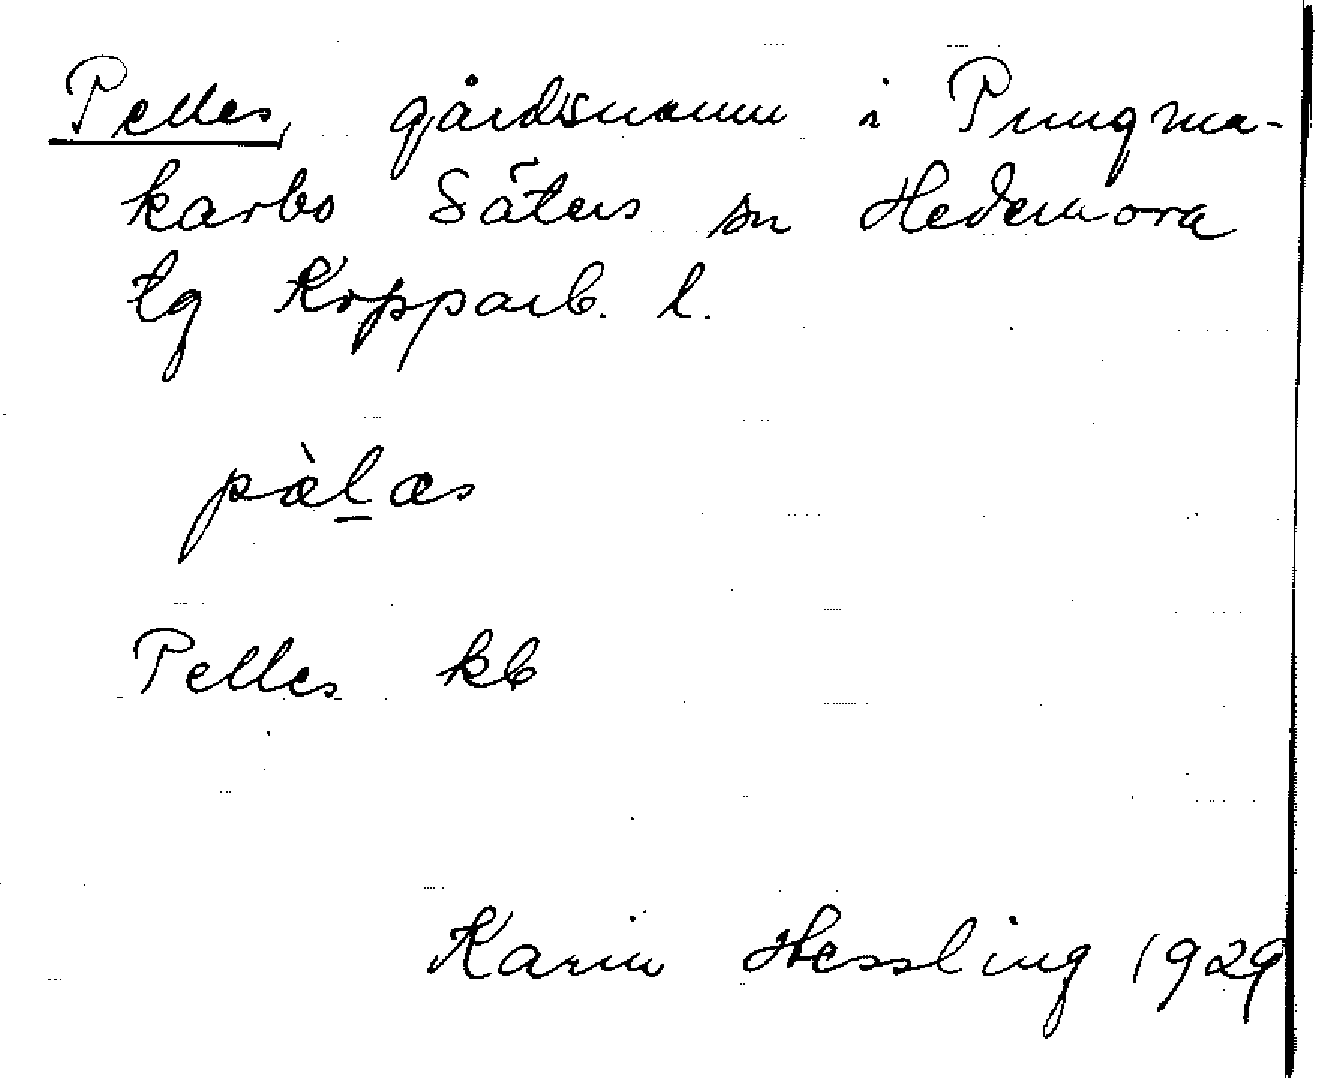 Pelles, gårdsnamn i Pungma-
karbo Säters sn Hedemora
tg Kopparb. l.
pæ̀l̲æs
Pelles kb
Karin Hessling 1929